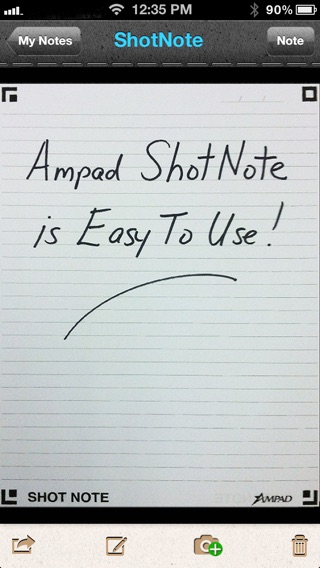 12:35 PM 90%
My Notes ShotNote Note
Ampad ShotNote
is Easy To Use!
SHOT NOTE AMPAD